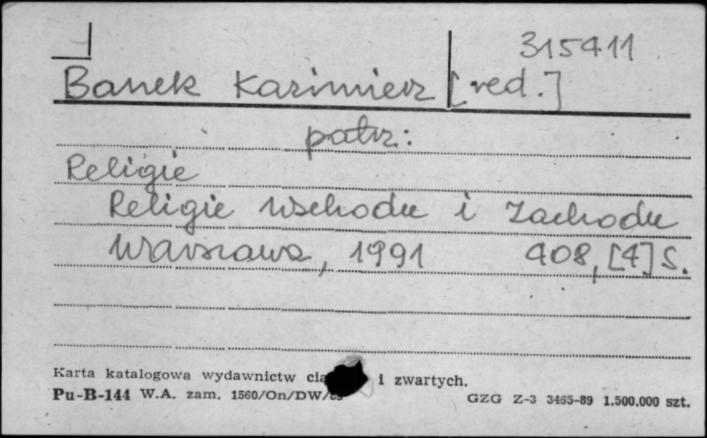 315411
Banek Kazimierz [red.]
patrz:
Religie
Religie Wschodu i Zachodu
Warszawa, 1991 408, [4] s.
Karta katalogowa wydawnictw i zwartych.
Pu-B-144 W.A. zam. 1560/On/DW/
GZG Z-3 3465-89 1.500.000 szt.